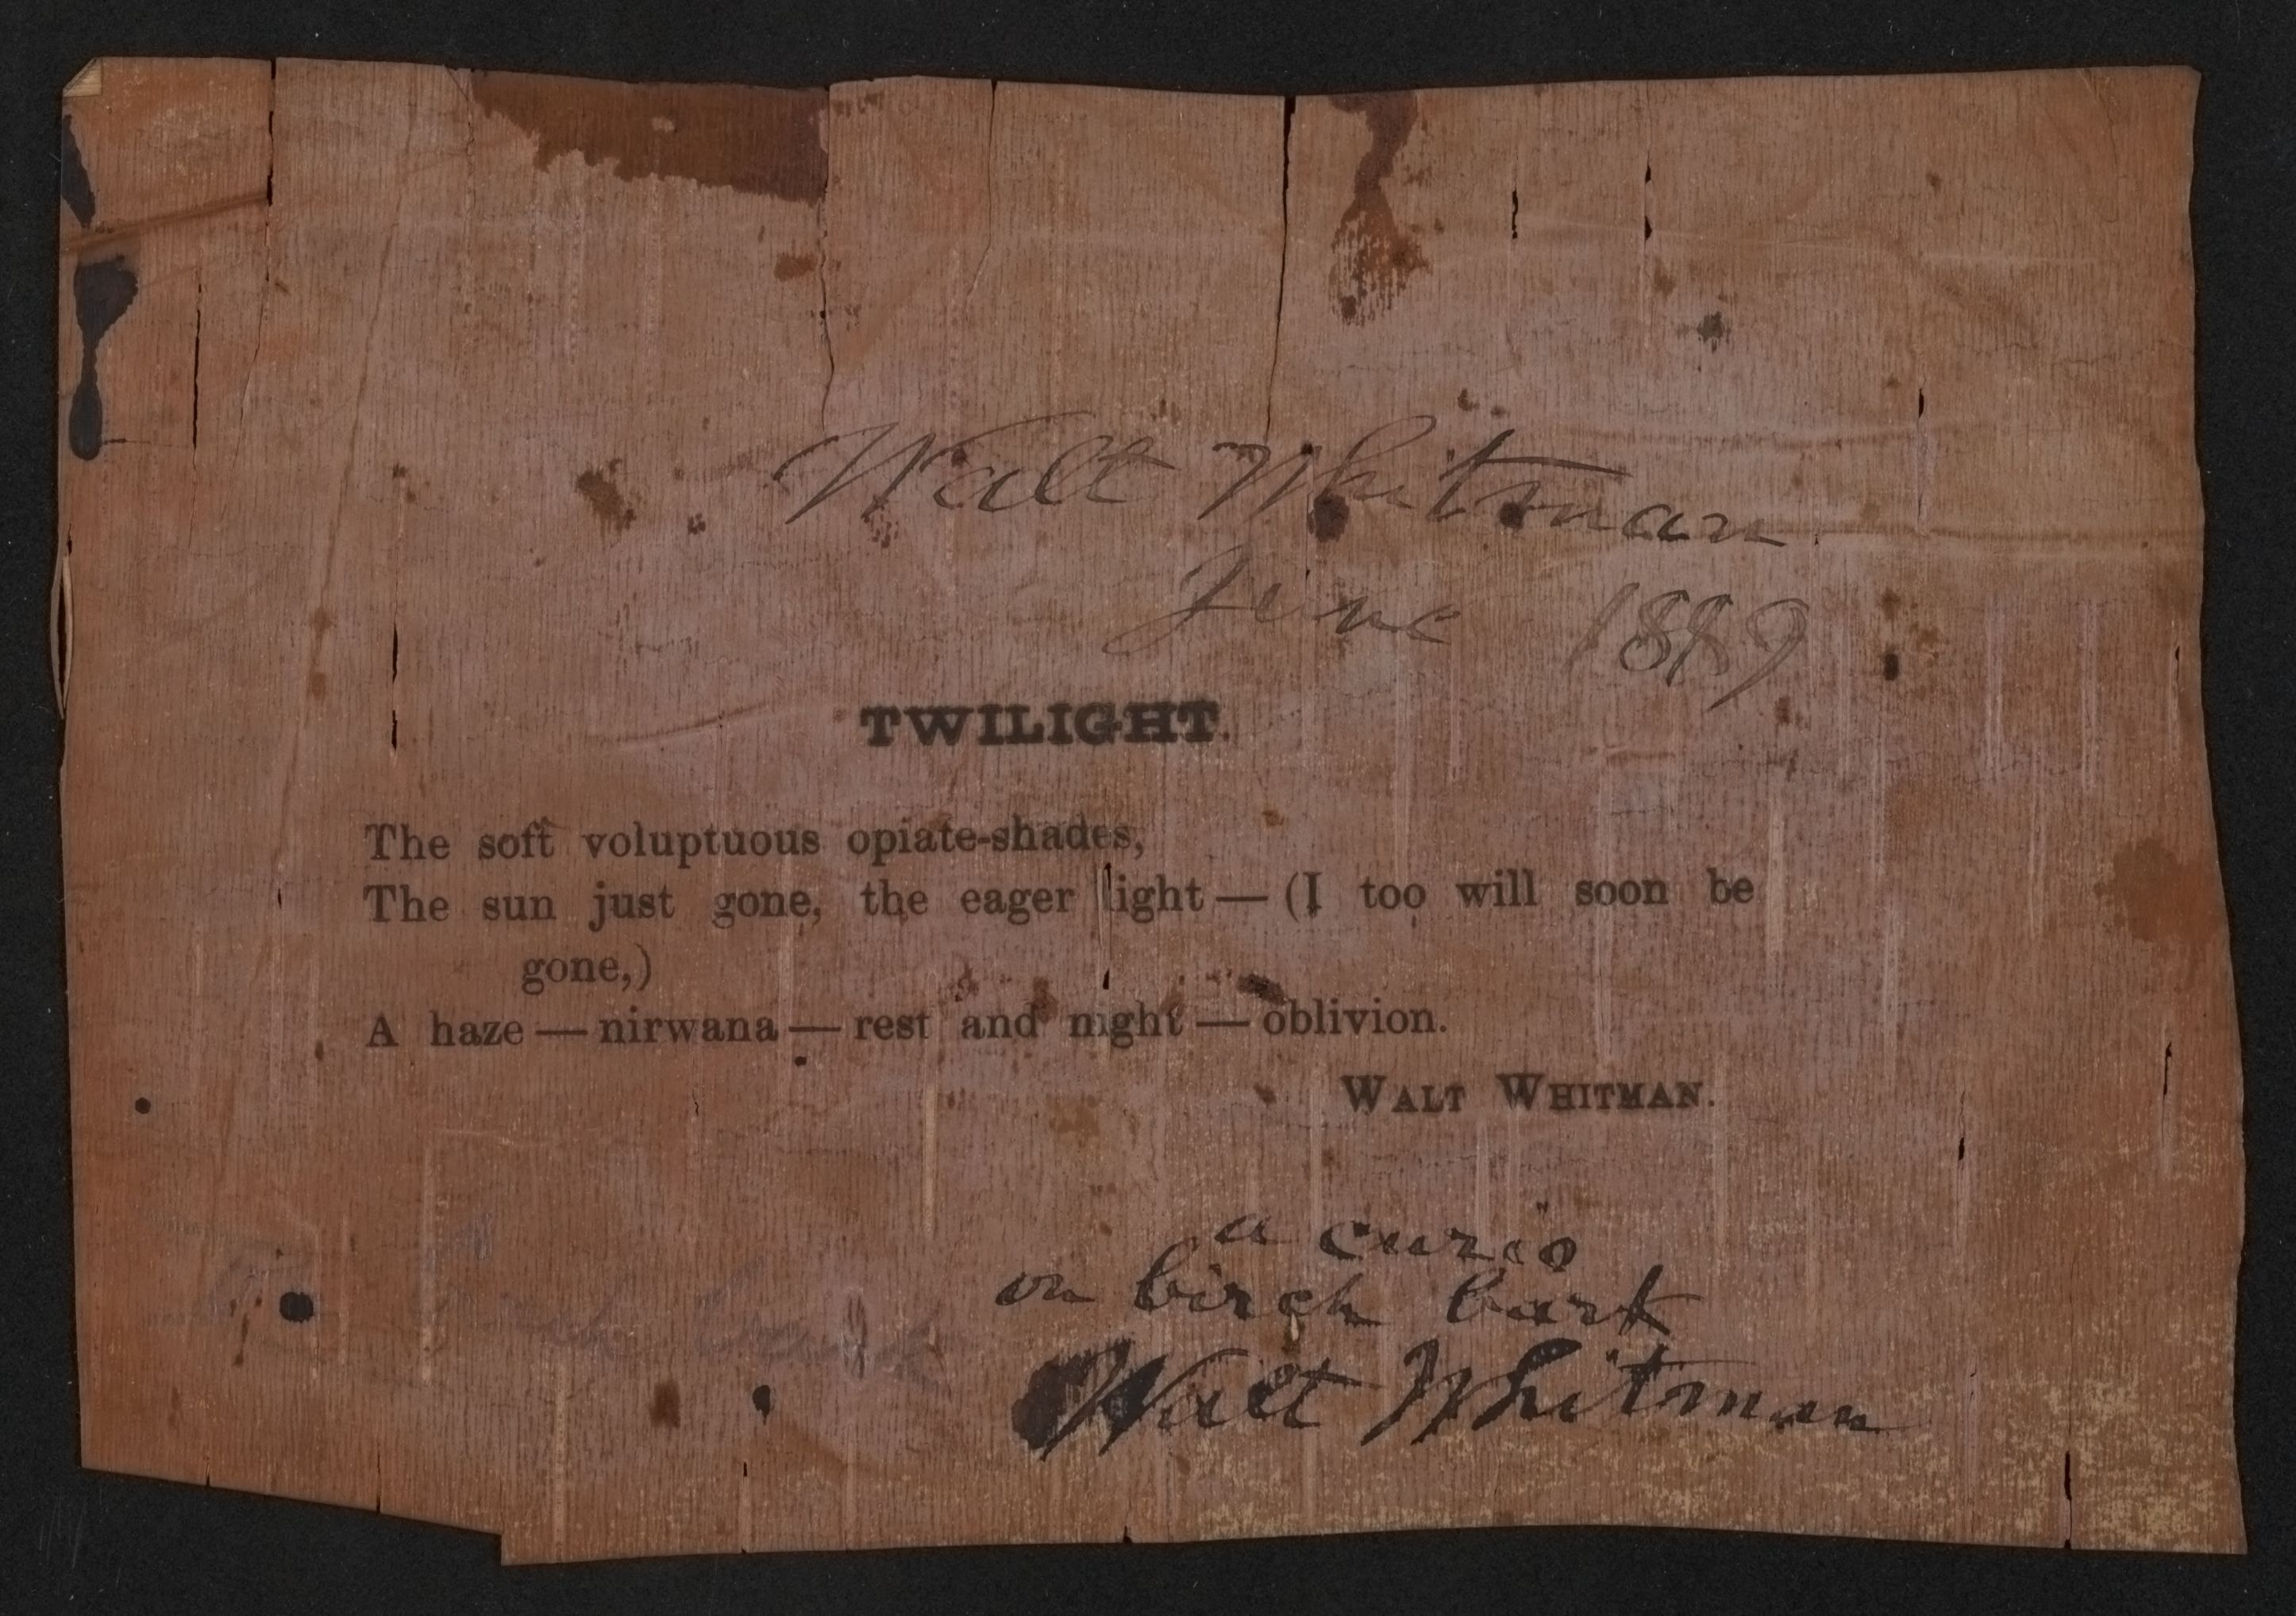 Walt Whitman
June 1889
TWILIGHT.
The soft voluptuous opiate-shades,
The sun just gone, the eager light — (I too will soon be
gone,)
A haze — nirwana — rest and night — oblivion.
WALT WHITMAN.
a curio
on birch bark
Walt Whitman